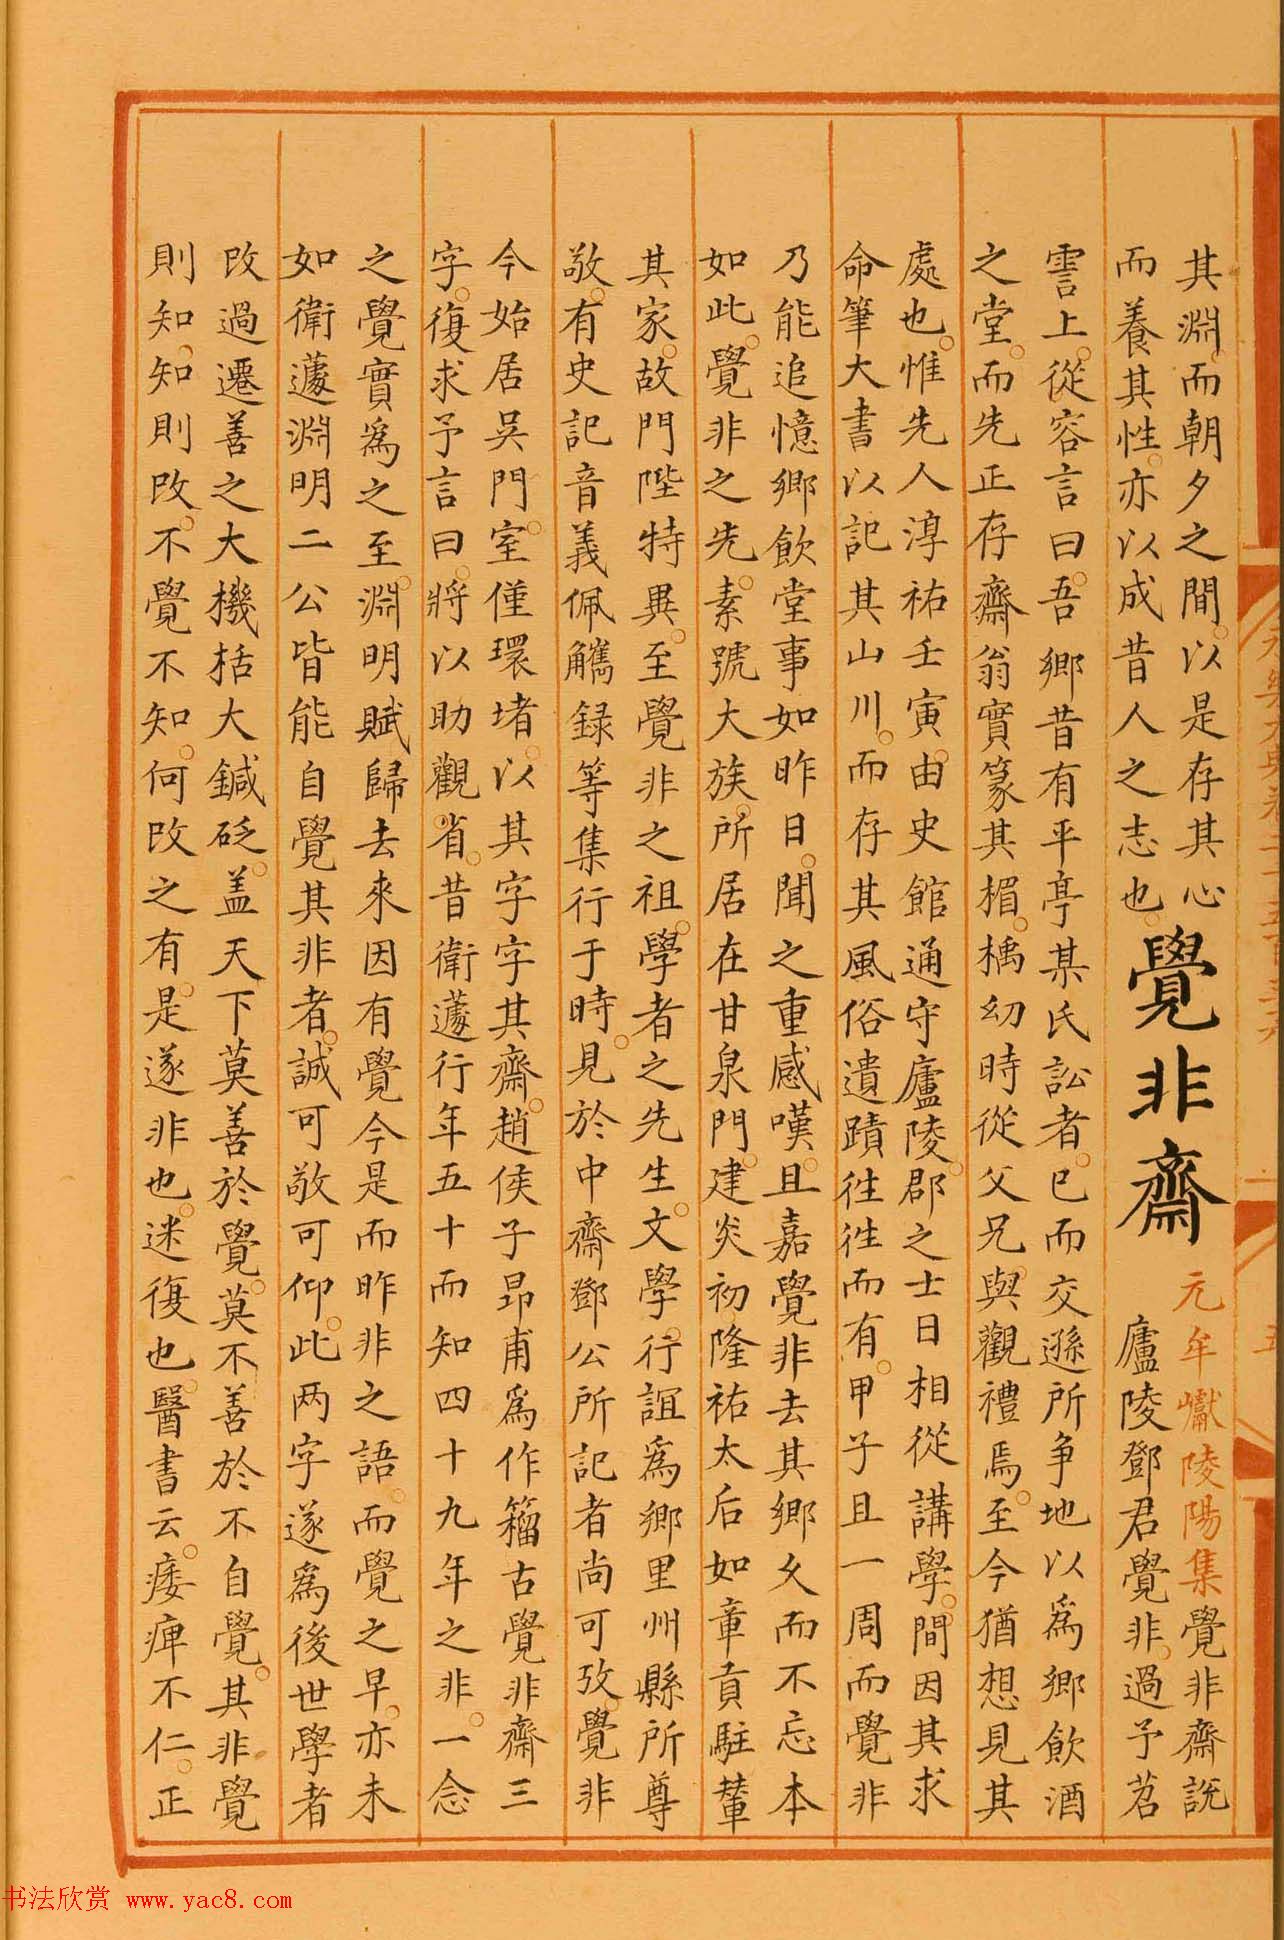 其淵而朝夕之間以是存其心
而養其性亦以成昔人之志也
覺非齋
元牟巘陵陽集覺非齋說
廬陵鄧君覺非過予苕
霅上從容言曰吾鄉昔有平亭某氏訟者已而交遜所争地以爲鄉飲酒
之堂而先正存齋翁實篆其楣楀幼時從父兄與觀禮焉至今猶想見其
處也惟先人淳祐壬寅由史館通守廬陵郡之士日相從講學間因其求
命筆大書以記其山川而存其風俗遺蹟徃徃而有甲子且一周而覺非
乃能追憶鄉飲堂事如昨日聞之重感嘆且嘉覺非去其鄉久而不忘本
如此覺非之先素號大族所居在甘泉門建炎初隆祐太后如章貢駐輦
其家故門陛特異至覺非之祖學者之先生文學行誼爲鄉里州縣所尊
敬有史記音義佩觹録等集行于時見於中齋鄧公所記者尚可攷覺非
今始居吳門室僅環堵以其字字其齋趙侯子昂甫爲作籀古覺非齋三
字復求予言曰將以助觀省昔衛蘧行年五十而知四十九年之非一念
之覺實爲之至淵明賦歸去來因有覺今是而昨非之語而覺之早亦未
如衛蘧淵明二公皆能自覺其非者誠可敬可仰此两字遂爲後世學者
改過遷善之大機栝大鍼砭盖天下莫善於覺莫不善於不自覺其非覺
則知知則改不覺不知何改之有是遂非也迷復也醫書云痿痺不仁正
书法欣赏 www.yac8.com